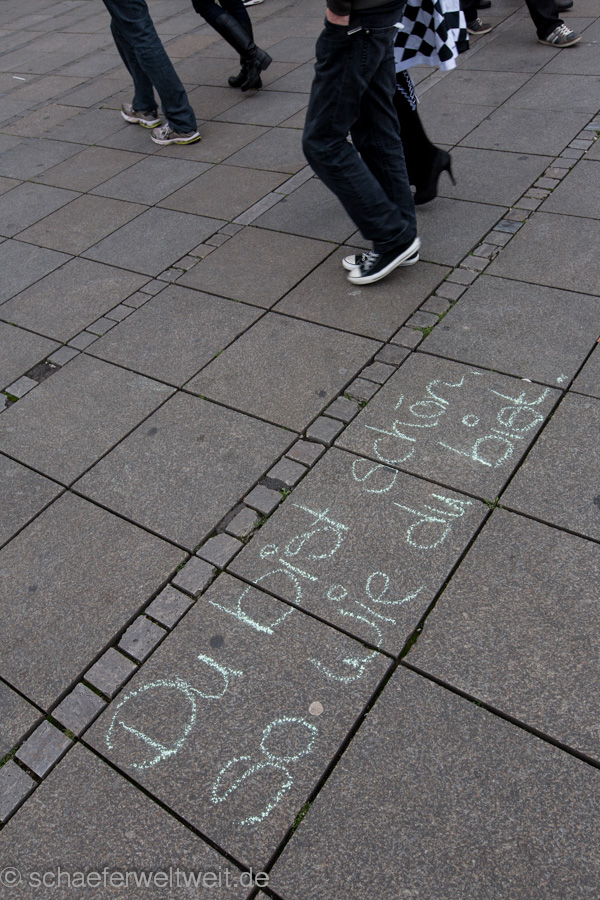 Du bist schön
so wie du bist.
© schaeferweltweit.de